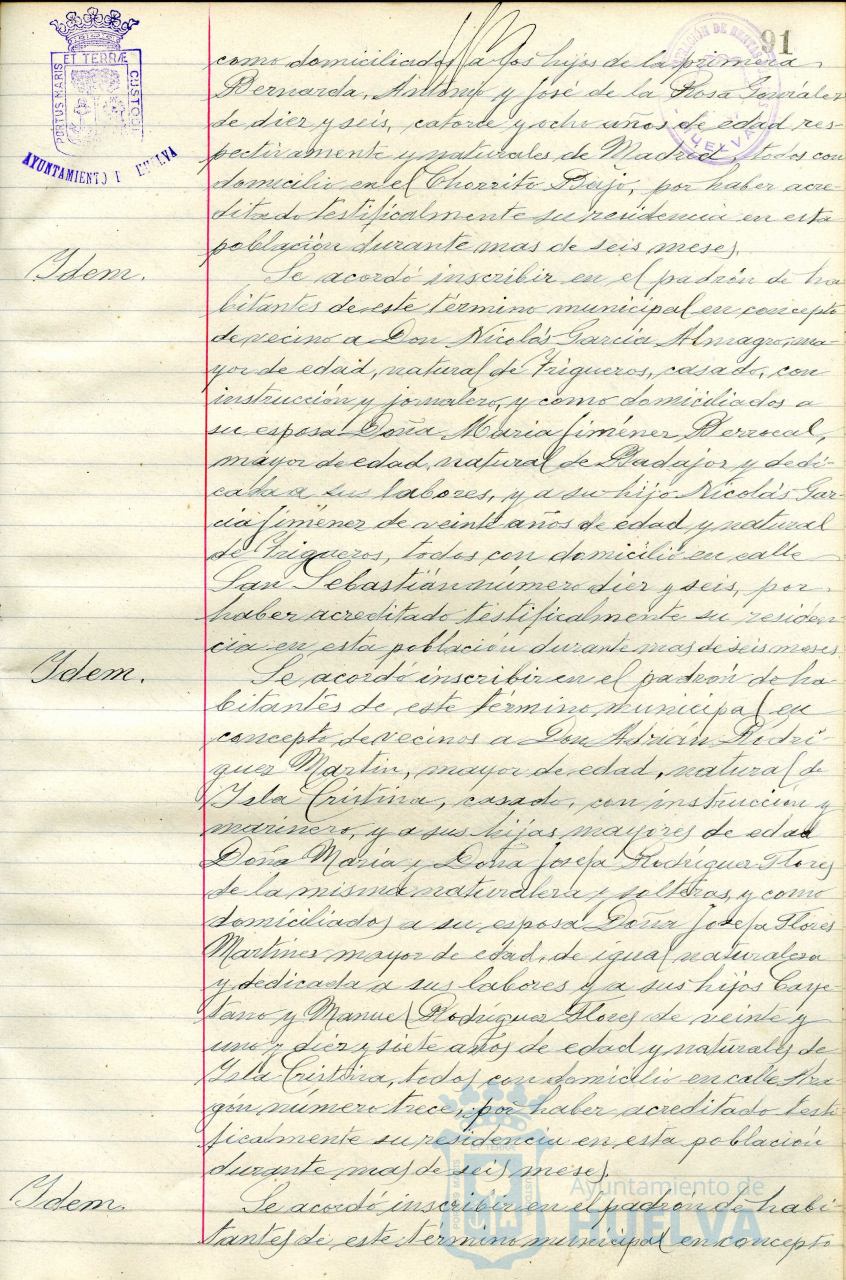 91
PORTUS MARIS ET TERRÆ CUSTODI
AYUNTAMIENTO HUELVA
HUELVA
como domiciliados a los hijos de la primera
Bernarda, Antonio y José de la Rosa González
de diez y seis, catorce y ocho años de edad res-
pectivamente y naturales de Madrid, todos con
domicilio en el Chorrito Bajo, por haber acre-
ditado testificalmente su residencia en esta
población durante mas de seis meses.
Idem.
Se acordó inscribir en el padrón de ha-
bitantes de este término municipal en concepto
de vecino a Don Nicolás García Almagro, ma-
yor de edad, natural de Trigueros, casado, con
instrucción y jornalero, y como domiciliados a
su esposa Doña María Jiménez Berrocal,
mayor de edad, natural de Badajoz y dedi-
cada a sus labores, y a su hijo Nicolás Gar-
cía Jiménez de veinte años de edad y natural
de Trigueros, todos con domicilio en calle
San Sebastián número diez y seis, por
haber acreditado testificalmente su residen-
cia en esta población durante mas de seis meses.
Idem.
Se acordó inscribir en el padrón de ha-
bitantes de este término municipal en
concepto de vecinos a Don Adrián Rodrí-
guez Martin, mayor de edad, natural de
Isla Cristina, casado, con instrucción y
marinero, y a sus hijas mayores de edad
Doña María y Doña Josefa Rodríguez Flores
de la misma naturaleza y solteras, y como
domiciliados a su esposa Doña Josefa Flores
Martínez mayor de edad, de igual naturaleza
y dedicada a sus labores y a sus hijos Caye-
tano y Manuel Rodríguez Flores de veinte y
uno y diez y siete años de edad y naturales de
Isla Cristina, todos con domicilio en calle Ara-
gón número trece, por haber acreditado testi-
ficalmente su residencia en esta población
durante mas de seis meses.
Idem.
Se acordó inscribir en el padrón de habi-
tantes de este término municipal en concepto
Ayuntamiento de
HUELVA